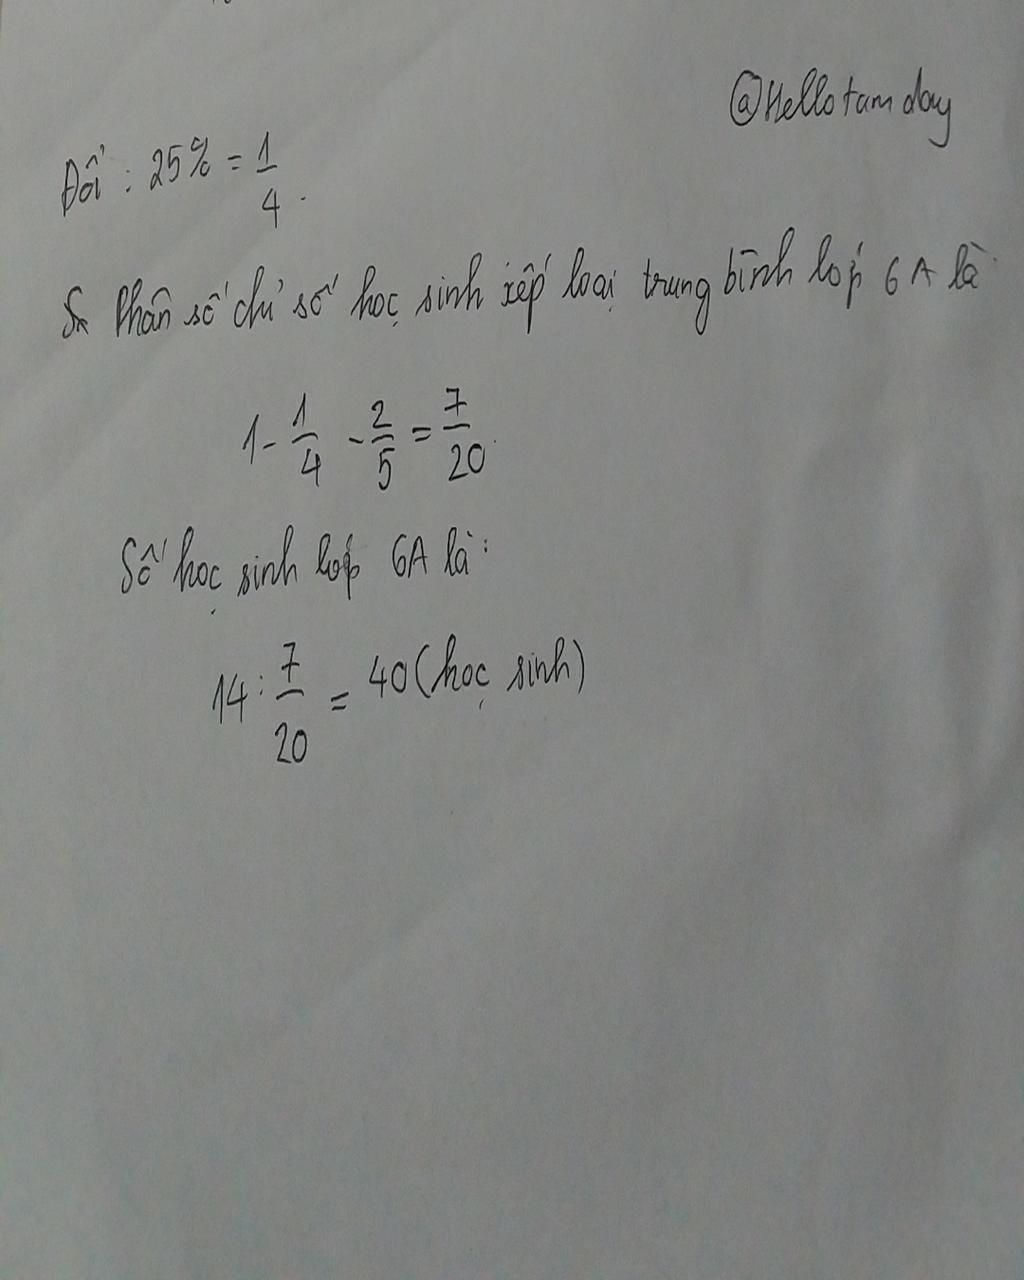 @Hellotamday
Đổi : 25% = 1/4.
Phân số chỉ số học sinh xếp loại trung bình lớp 6A là
1 - 1/4 - 2/5 = 7/20.
Số học sinh lớp 6A là:
14 : 7/20 = 40 (học sinh)